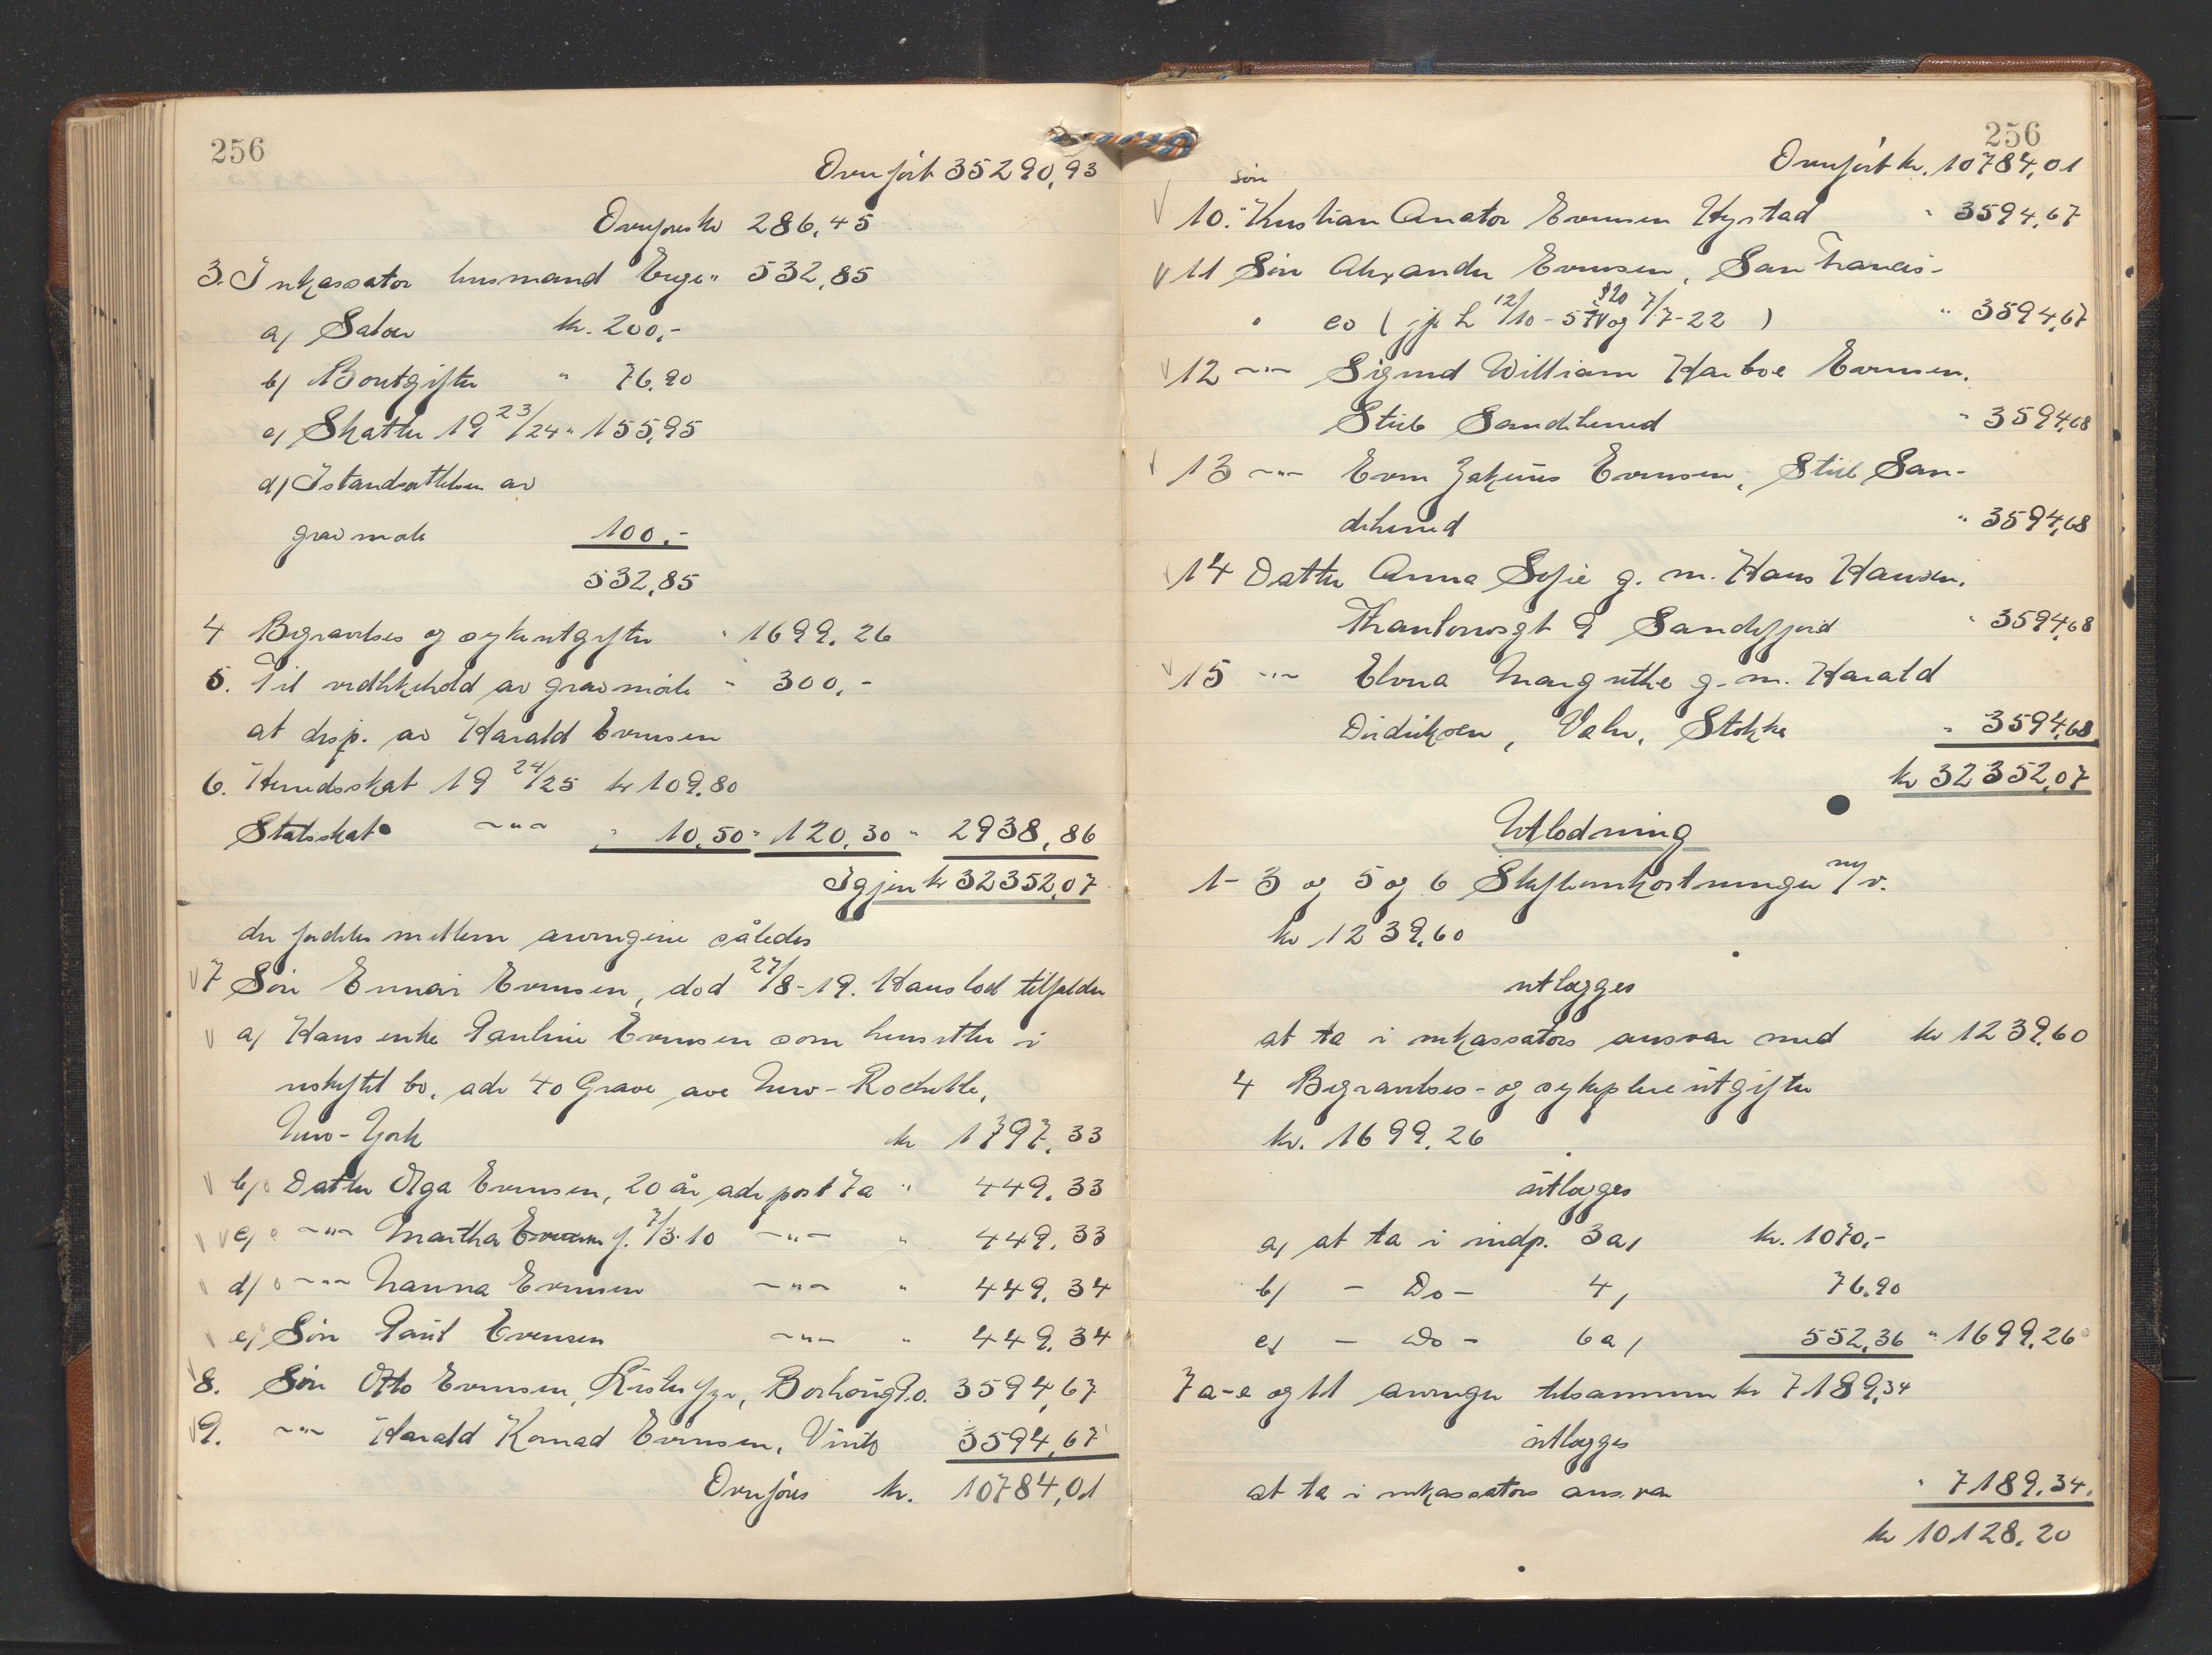 256
Overført 35290,93
Overføres kr 286,45
3. Inkassator lensmand Enge " 532,85
a) Salær kr. 200,-
b) Boutgifter " 76.90
c) Skatter 19 23/24 " 155,95
d) Istandsættelse av
gravmæle 100.-
532,85
4 Begravelses og sykeutgifter " 1699.26
5. Til vedlikehold av gravmæle " 300,-
at disp. av Harald Evensen
6. Herredsskat 19 24/25 kr 109.80
Statsskat -"- " 10,50 " 120,30 " 2938,86
Igjen kr 32352,07
der fordeles mellem arvingene således
7 Søn Einar Evensen, død 27/8-19. Hans lod tilfalder
a) Hans enke Pauline Evensen som hensitter i
uskiftet bo, adr 40 Grave ave New-Rochelle,
New-York kr 1797.33
b) Datter Olga Evensen, 20 år adr post 7a " 449.33
c) -"- Martha Evensen f. 7/3-10 -"- " 449.33
d) -"- Nanna Evensen -"- " 449.34
e) Søn Paul Evensen -"- " 449.34
8. Søn Otto Evensen, P.o. 3594,67
9. -"- Harald Konrad Evensen, 3594,67
Overføres kr. 10784,01
256
Overført kr. 10784,01
søn
10. " Kristian Anator Evensen Hystad " 3594,67
11 Søn Alexander Evensen, San Francis-
co ( jfr L 12/10-5 320 og 7/7-22 ) " 3594,67
12 -"- Sigurd William Harboe Evensen.
Stub Sandeherred " 3594,68
13 -"- Even Zakeus Evensen, Stub San-
deherred " 3594,68
14 Datter Anna Sofie g. m. Hans Hansen.
Thaulowsgt 9 Sandefjord " 3594,68
15 -"- Elvina Margrethe g. m. Harald
Didriksen, Valø, Stokke " 3594,68
kr 32352,07
Utlodning
1- 3 og 5 og 6 Skifteomkostninger m/v.
kr 1239,60
utlægges
at ta i inkassators ansvar med kr 1239,60
4 Begravelses- og sykepleieutgifter
kr. 1699.26
utlægges
a) at ta i indp. 3a, kr. 1070,-
b) - Do - 4, 76.90
c) - Do - 6a, 552,36 " 1699,26
7 a-e og 11 arvinger tilsammen kr 7189,34
utlægges
at ta i inkassators ansvar " 7189.34.
kr 10128.20